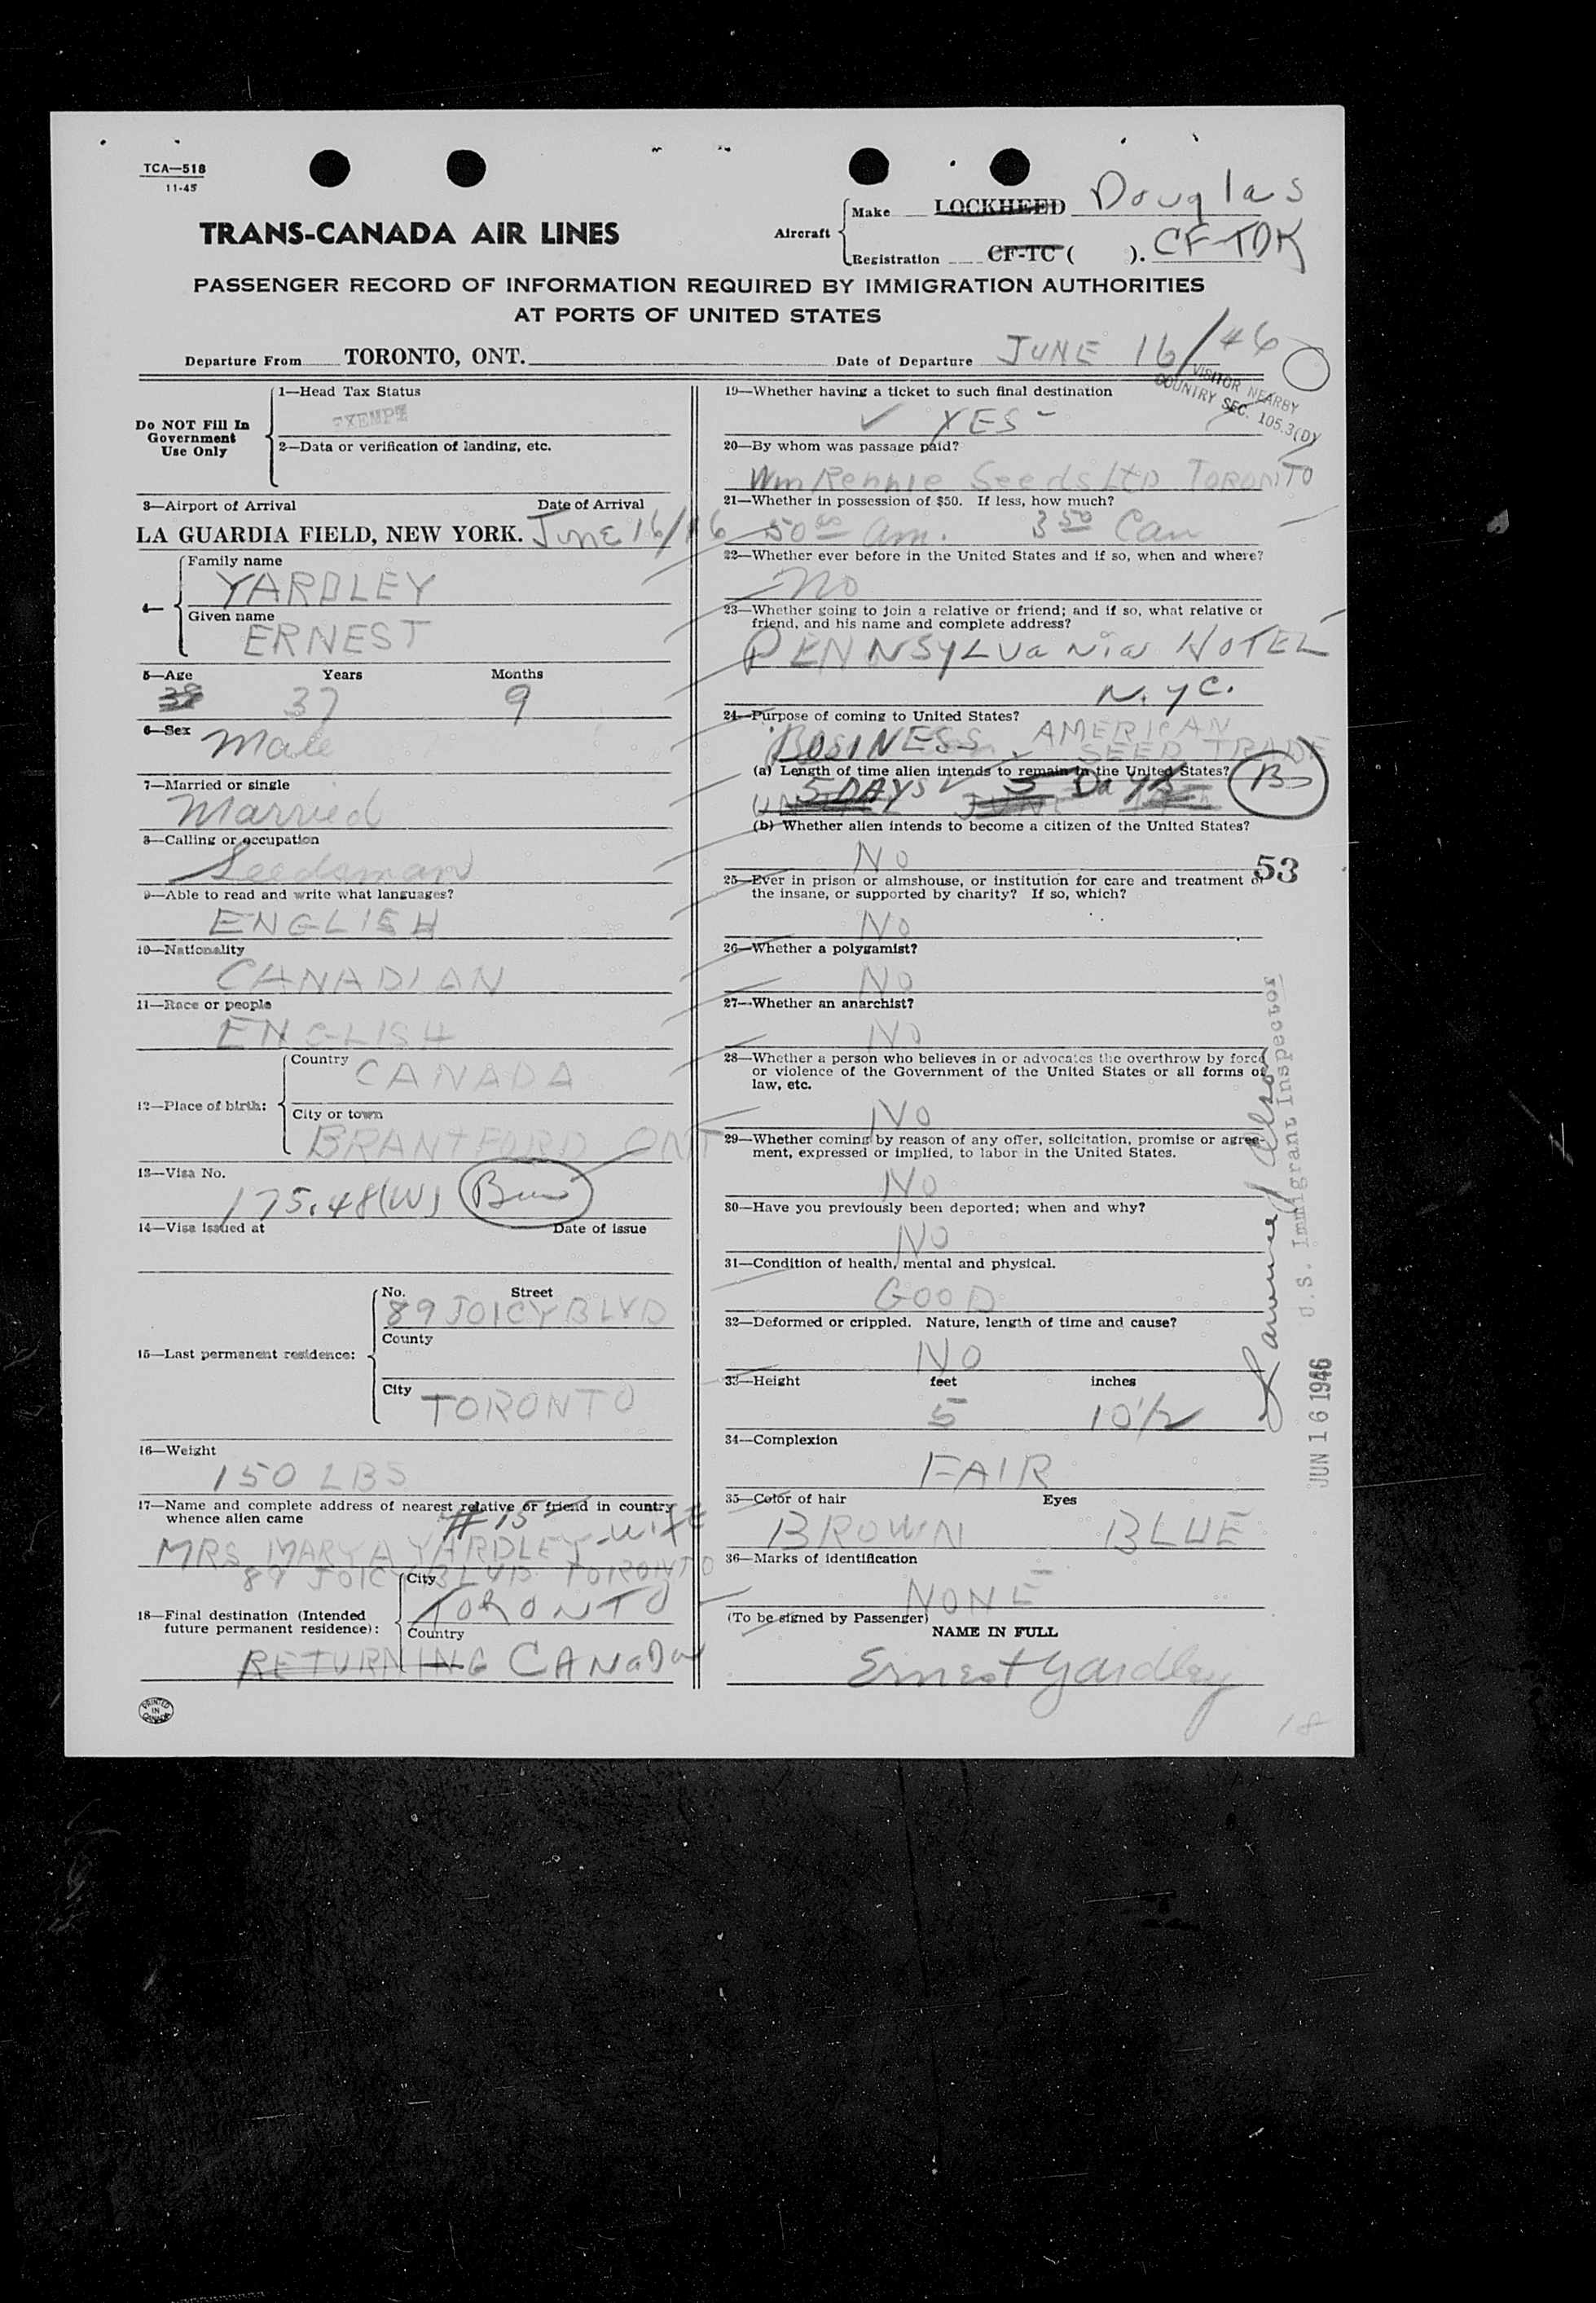 TCA—518
11-45
TRANS-CANADA AIR LINES
Aircraft
Make LOCKHEED Douglas
Registration CF-TC ( ). CF-TDK
PASSENGER RECORD OF INFORMATION REQUIRED BY IMMIGRATION AUTHORITIES
AT PORTS OF UNITED STATES
Departure From TORONTO, ONT. Date of Departure JUNE 16/46
VISITOR NEARBY
COUNTRY SEC. 105.3(D)
Do NOT Fill In
Government
Use Only
1—Head Tax Status
EXEMPT
2—Data or verification of landing, etc.
3—Airport of Arrival Date of Arrival
LA GUARDIA FIELD, NEW YORK. June 16/46
4—
Family name
YARDLEY
Given name
ERNEST
5—Age Years Months
38 37 9
6—Sex
Male
7—Married or single
Married
8—Calling or occupation
Seedsman
9—Able to read and write what languages?
ENGLISH
10—Nationality
CANADIAN
11—Race or people
ENGLISH
12—Place of birth:
Country
CANADA
City or town
BRANTFORD ONT
13—Visa No.
175.48(W)
14—Visa issued at Date of issue
15—Last permanent residence:
No. Street
89 JOICY BLVD
County
City
TORONTO
16—Weight
150 LBS
17—Name and complete address of nearest relative or friend in country
whence alien came
#15
MRS MARY A YARDLEY - WIFE
89 JOICY BLVD TORONTO
18—Final destination (Intended
future permanent residence):
City
TORONTO
Country
RETURNING CANADA
PRINTED
IN
CANADA
19—Whether having a ticket to such final destination
✓ YES -
20—By whom was passage paid?
Wm Rennie Seeds Ltd TORONTO
21—Whether in possession of $50. If less, how much?
50.00 am. 3 50 Can
22—Whether ever before in the United States and if so, when and where?
No
23—Whether going to join a relative or friend; and if so, what relative or
friend, and his name and complete address?
PENNSYLVania HOTEL
N.YC.
24—Purpose of coming to United States?
BUSINESS AMERICAN
SEED TRADE
(a) Length of time alien intends to remain in the United States?
5 DAYS 5 DaYS
UNTIL JUNE
(b) Whether alien intends to become a citizen of the United States?
No
53
25—Ever in prison or almshouse, or institution for care and treatment of
the insane, or supported by charity? If so, which?
No
26—Whether a polygamist?
No
27—Whether an anarchist?
No
28—Whether a person who believes in or advocates the overthrow by force
or violence of the Government of the United States or all forms of
law, etc.
No
29—Whether coming by reason of any offer, solicitation, promise or agree-
ment, expressed or implied, to labor in the United States.
No
30—Have you previously been deported; when and why?
No
31—Condition of health, mental and physical.
GOOD
32—Deformed or crippled. Nature, length of time and cause?
NO
33—Height feet inches
5 10 1/2
34—Complexion
FAIR
35—Color of hair Eyes
BROWN BLUE
36—Marks of identification
NONE
(To be signed by Passenger)
NAME IN FULL
Ernest Yardley
18
U.S. Immigrant Inspector
JUN 16 1946